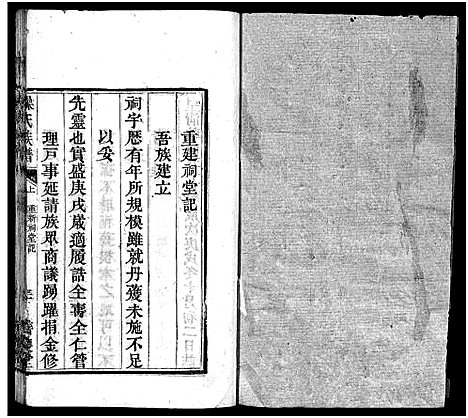 重建祠堂記
吾族建立
祠宇歷有年所規模雖就丹雘未施不足
以妥
先靈也實盛庚戌歲適履誥全壽全仁管
理戶事延請族眾商議踴躍捐金修
氏族譜
上
重新祠堂記